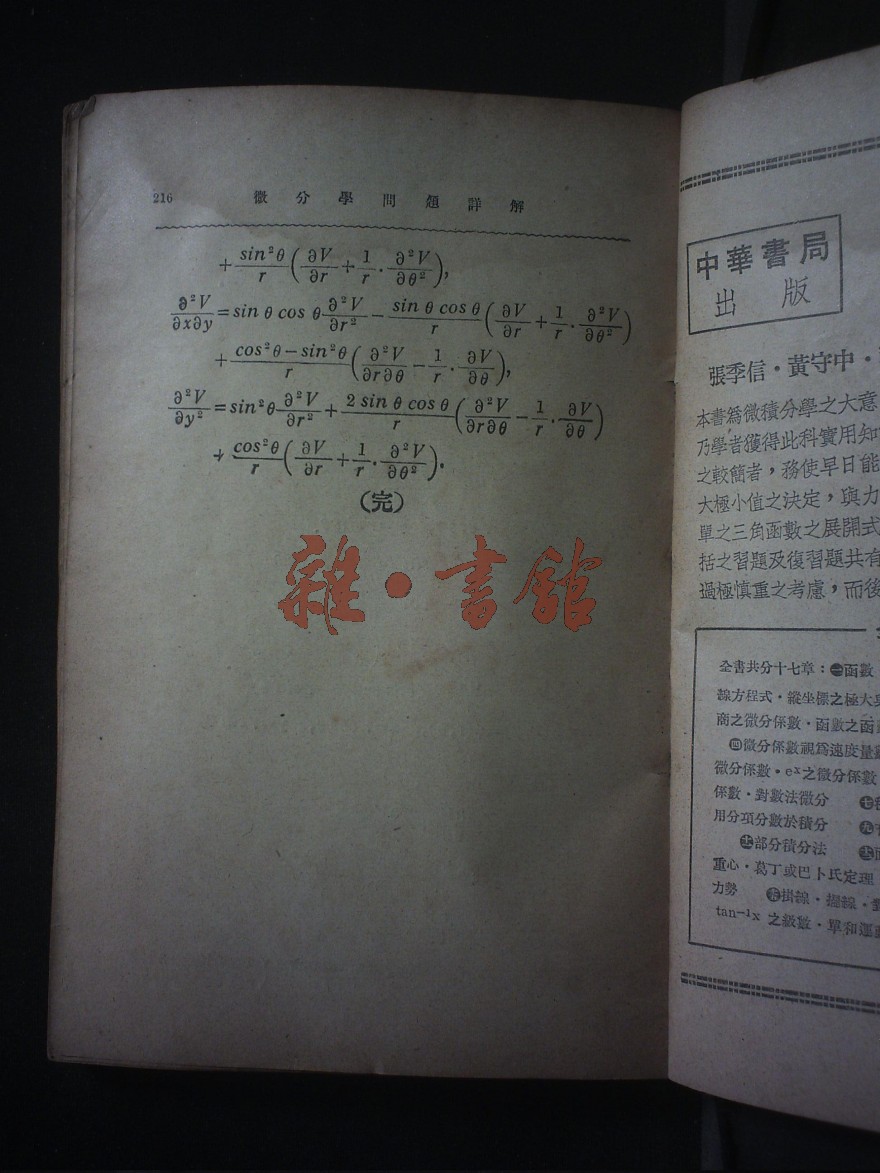 216 微分學問題詳解
+ sin²θ/r (∂V/∂r + 1/r · ∂²V/∂θ²),
∂²V/∂x∂y = sin θ cos θ ∂²V/∂r² − sin θ cos θ/r (∂V/∂r + 1/r · ∂²V/∂θ²)
+ cos²θ−sin²θ/r (∂²V/∂r∂θ − 1/r · ∂V/∂θ),
∂²V/∂y² = sin²θ ∂²V/∂r² + 2 sin θ cos θ/r (∂²V/∂r∂θ − 1/r · ∂V/∂θ)
+ cos²θ/r (∂V/∂r + 1/r · ∂²V/∂θ²).
(完)
雜·書館
中華書局
出版
張季信·黃守中·
本書爲微積分學之大意
乃學者獲得此科實用知
之較簡者，務使早日能
大極小值之決定，與力
單之三角函數之展開式
括之習題及復習題共有
過極慎重之考慮，而後
全書共分十七章：㊀函數
線方程式·縱坐標之極大
商之微分係數·函數之函
㊃微分係數視爲速度量
微分係數·eˣ之微分係數
係數·對數法微分 ㊆
用分項分數於積分 ㊈
部分積分法
重心·葛丁或巴卜氏定理
力勢 掛線·
tan⁻¹x 之級數·單和運